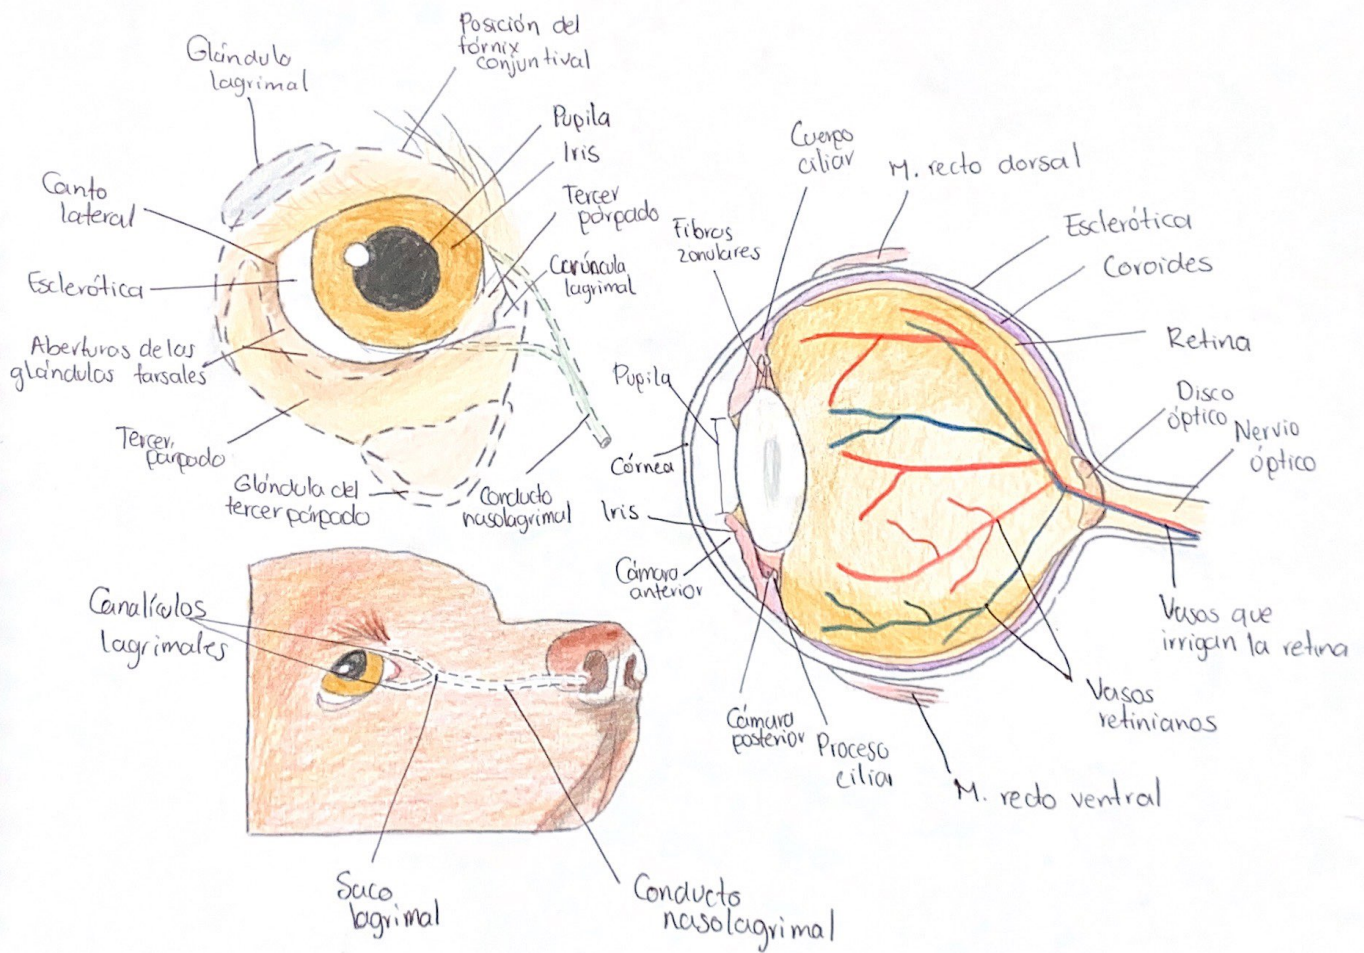 Glándula
lagrimal
Posición del
fórnix
conjuntival
Pupila
Iris
Tercer
párpado
Carúncula
lagrimal
Canto
lateral
Esclerótica
Aberturas de las
glándulas tarsales
Tercer
párpado
Glándula del
tercer párpado
Conducto
nasolagrimal
Canalículos
lagrimales
Saco
lagrimal
Conducto
nasolagrimal
Cuerpo
ciliar
M. recto dorsal
Fibras
zonulares
Esclerótica
Coroides
Retina
Disco
óptico
Nervio
óptico
Pupila
Córnea
Iris
Cámara
anterior
Cámara
posterior
Proceso
ciliar
Vasos que
irrigan la retina
Vasos
retinianos
M. recto ventral